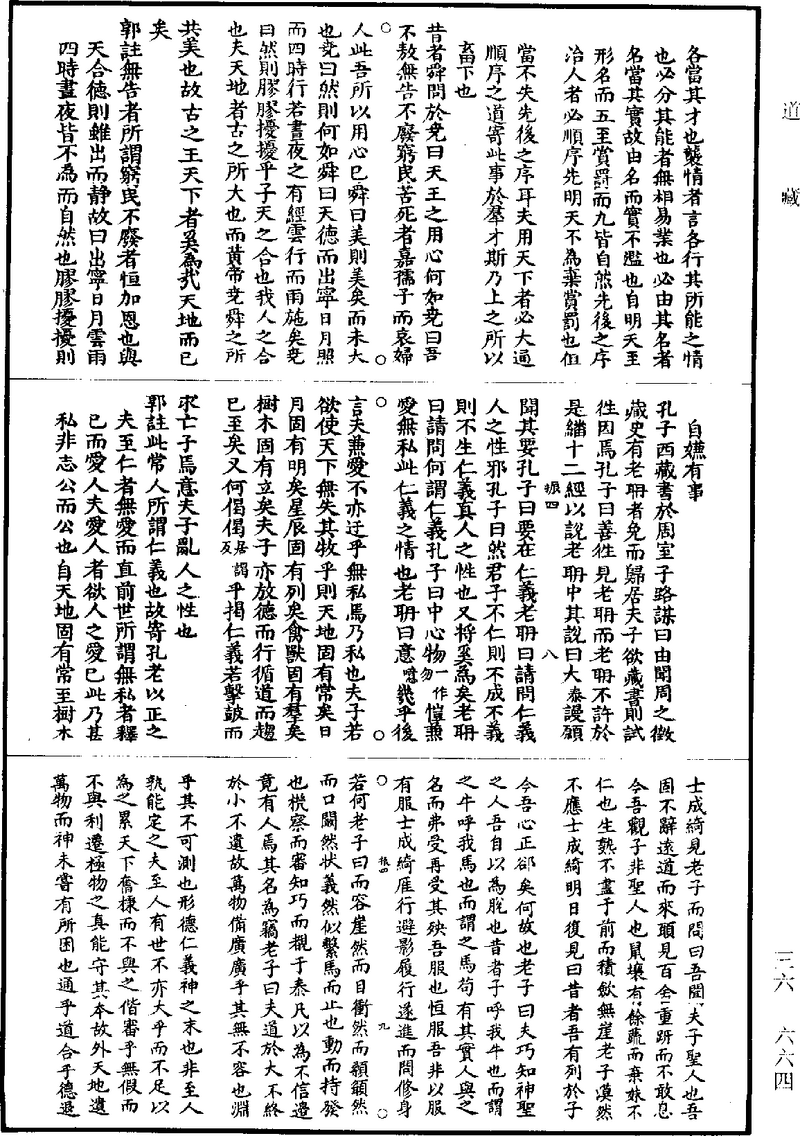 道藏
三六 六六四
各當其才也襲情者言各行其所能之情
也必分其能者無相易業也必由其名者
名當其實故由名而實不濫也自明天至
形名而五至賞罰而九皆自然先後之序
治人者必順序先明天不為棄賞罰也但
當不失先後之序耳夫用天下者必大通
順序之道寄此事於羣才斯乃上之所以
畜下也
昔者舜問於堯曰天王之用心何如堯曰吾
不敖無告不廢窮民苦死者嘉孺子而哀婦
人此吾所以用心已舜曰美則美矣而未大
也堯曰然則何如舜曰天德而出寧日月照
而四時行若晝夜之有經雲行而雨施矣堯
曰然則膠膠擾擾乎子天之合也我人之合
也夫天地者古之所大也而黄帝堯舜之所
共美也故古之王天下者奚為哉天地而已
矣
郭註無告者所謂窮民不廢者恒加恩也與
天合德則雖出而静故曰出寧日月雲雨
四時晝夜皆不為而自然也膠膠擾擾則
自嫌有事
孔子西藏書於周室子路謀曰由聞周之徵
藏史有老聃者免而歸居夫子欲藏書則試
往因焉孔子曰善往見老聃而老聃不許於
是繙十二經以說老聃中其說曰大泰謾願
聞其要孔子曰要在仁義老聃曰請問仁義
人之性邪孔子曰然君子不仁則不成不義
則不生仁義真人之性也又將奚為矣老聃
曰請問何謂仁義孔子曰中心物一作勿愷兼
愛無私此仁義之情也老聃曰意噫幾乎後
言夫兼愛不亦迂乎無私焉乃私也夫子若
欲使天下無失其牧乎則天地固有常矣日
月固有明矣星辰固有列矣禽獸固有羣矣
樹木固有立矣夫子亦放德而行循道而趨
已至矣又何偈偈居謁反乎揭仁義若擊鼓而
求亡子焉意夫子亂人之性也
郭註此常人所謂仁義也故寄孔老以正之
夫至仁者無愛而直前世所謂無私者釋
己而愛人夫愛人者欲人之愛己此乃甚
私非志公而公也自天地固有常至樹木
振四
八
士成綺見老子而問曰吾聞夫子聖人也吾
固不辭遠道而來願見百舍重趼而不敢息
今吾觀子非聖人也鼠壤有餘蔬而棄妹不
仁也生熟不盡于前而積斂無崖老子漠然
不應士成綺明日復見曰昔者吾有刺於子
今吾心正郤矣何故也老子曰夫巧知神聖
之人吾自以為脫也昔者子呼我牛也而謂
之牛呼我馬也而謂之馬苟有其實人與之
名而弗受再受其殃吾服也恒服吾非以服
有服士成綺雁行避影履行遂進而問修身
若何老子曰而容崖然而目衝然而顙頯然
而口闞然狀義然似繫馬而止也動而持發
也機察而審知巧而覩于泰凡以為不信邊
竟有人焉其名為竊老子曰夫道於大不終
於小不遺故萬物備廣廣乎其無不容也淵
乎其不可測也形德仁義神之末也非至人
孰能定之夫至人有世不亦大乎而不足以
為之累天下奮棅而不與之偕審乎無假而
不與利遷極物之真能守其本故外天地遺
萬物而神未嘗有所困也通乎道合乎德退
振四
九